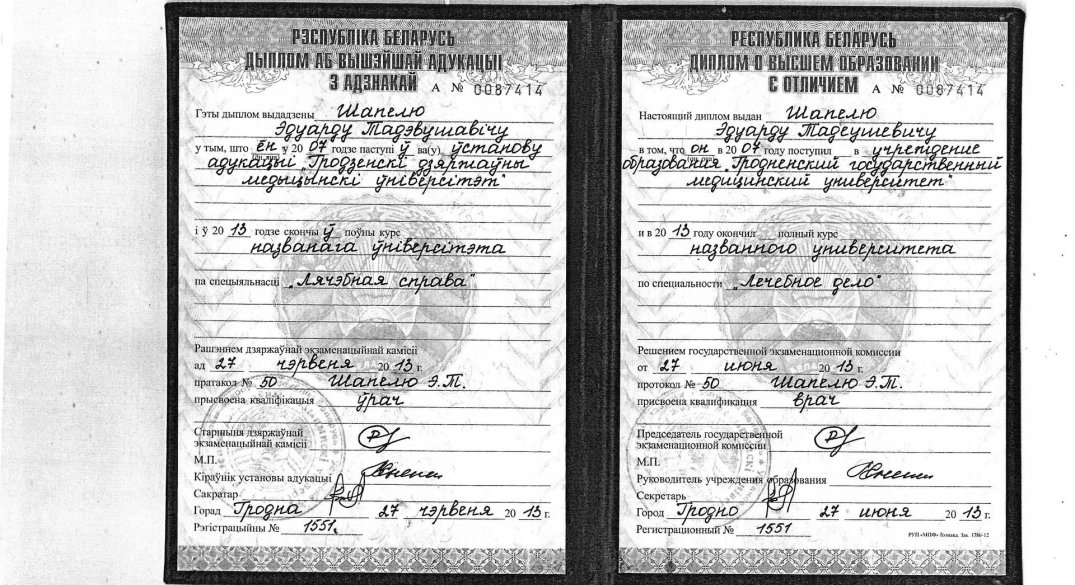 РЭСПУБЛІКА БЕЛАРУСЬ
ДЫПЛОМ АБ ВЫШЭЙШАЙ АДУКАЦЫІ
З АДЗНАКАЙ А № 0087414
Гэты дыплом выдадзены Шапелю
Эдуарду Тадэвушавічу
у тым, што ён у 2007 годзе паступіў ва(у) ўстанову
адукацыі "Гродзенскі дзяржаўны
медыцынскі ўніверсітэт"
і ў 2013 годзе скончыў поўны курс
названага ўніверсітэта
па спецыяльнасці „Лячэбная справа"
Рашэннем дзяржаўнай экзаменацыйнай камісіі
ад 27 чэрвеня 2013 г.
пратакол № 50 Шапелю Э.Т.
прысвоена кваліфікацыя ўрач
Старшыня дзяржаўнай
экзаменацыйнай камісіі
М.П.
Кіраўнік установы адукацыі
Сакратар
Горад Гродна 27 чэрвеня 2013 г.
Рэгістрацыйны № 1551
РЕСПУБЛИКА БЕЛАРУСЬ
ДИПЛОМ О ВЫСШЕМ ОБРАЗОВАНИИ
С ОТЛИЧИЕМ А № 0087414
Настоящий диплом выдан Шапелю
Эдуарду Тадеушевичу
в том, что он в 2007 году поступил в учреждение
образования "Гродненский государственный
медицинский университет"
и в 2013 году окончил полный курс
названного университета
по специальности „Лечебное дело"
Решением государственной экзаменационной комиссии
от 27 июня 2013 г.
протокол № 50 Шапелю Э.Т.
присвоена квалификация врач
Председатель государственной
экзаменационной комиссии
М.П.
Руководитель учреждения образования
Секретарь
Город Гродно 27 июня 2013 г.
Регистрационный № 1551
РУП «МПФ» Гознака. Зак. 1280-12